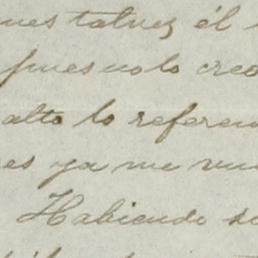 ues talvez él
pues no lo creo
alto lo referen
es ya me vun
Habiendo s